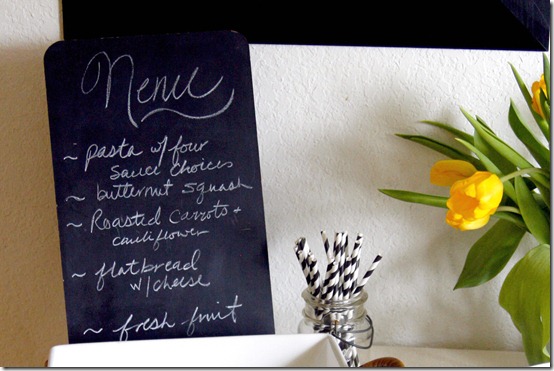 Menu
~ pasta w/ four
sauce choices
~ butternut squash
~ Roasted Carrots +
cauliflower
~ flatbread
w/ cheese
~ fresh fruit